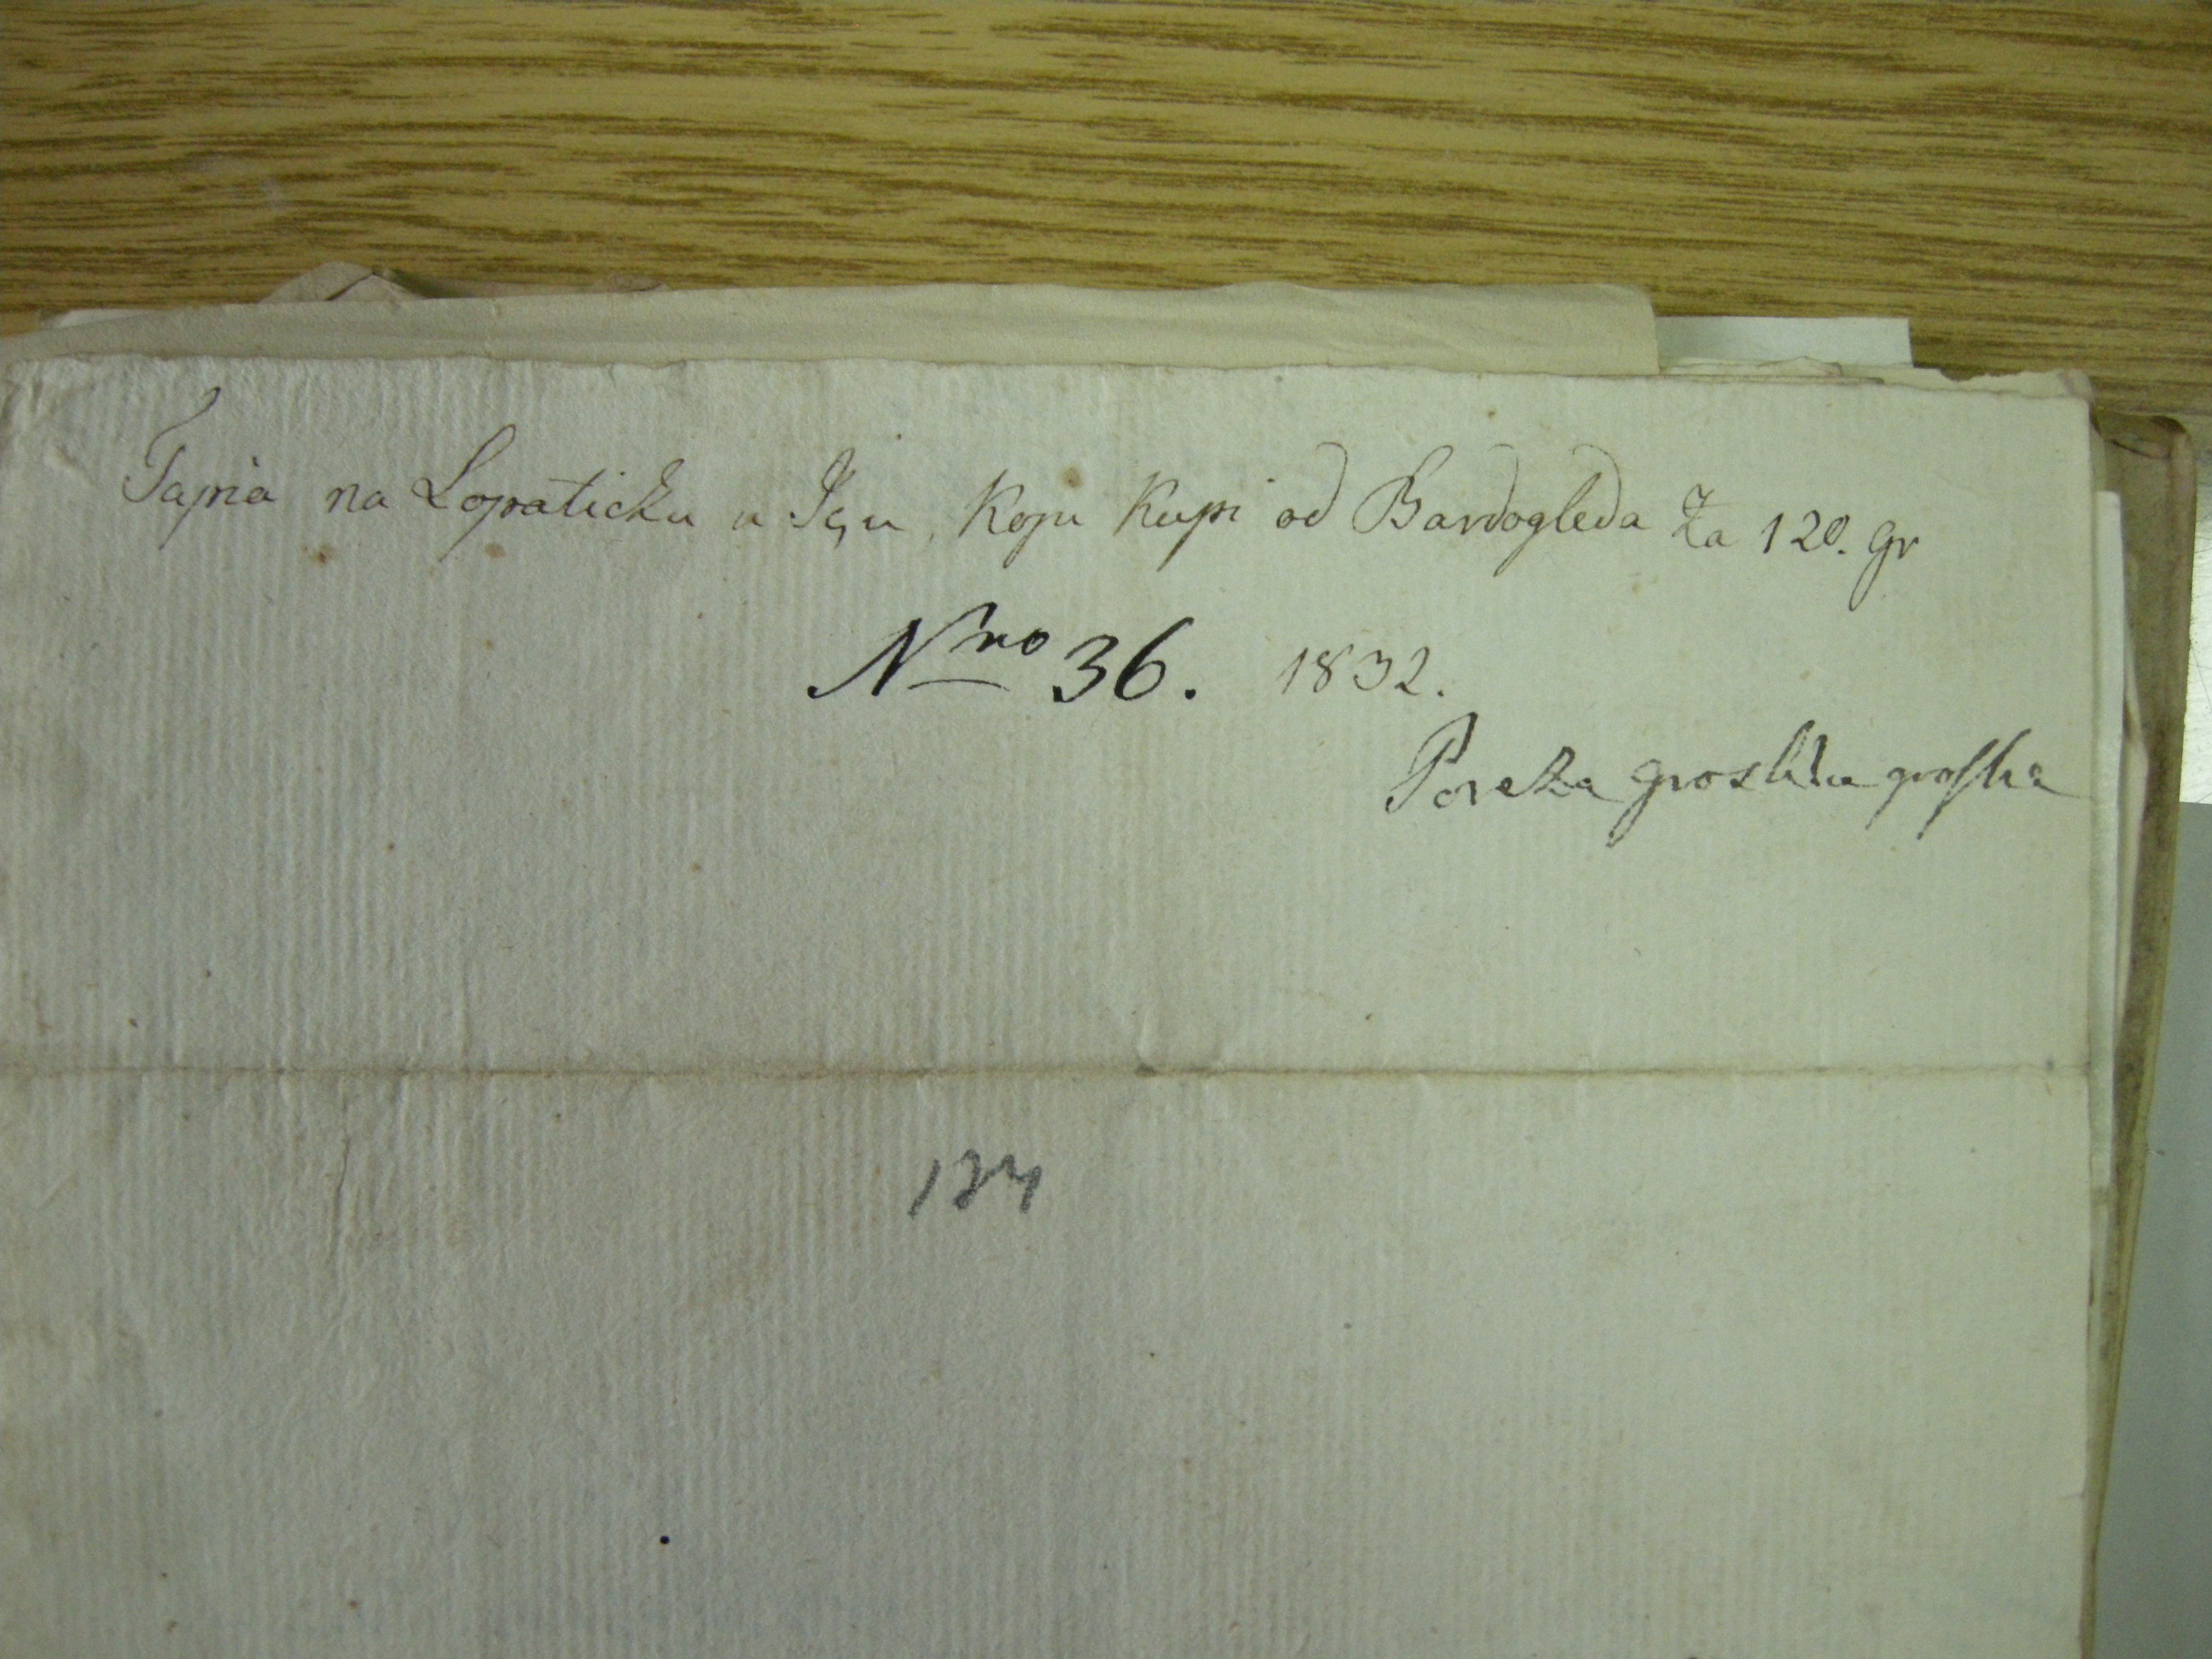 Tapia na Lopaticku u Içu, Koju Kupi od Bardogleda Za 120. gr
Nro 36. 1832.
Poreza groshka
134